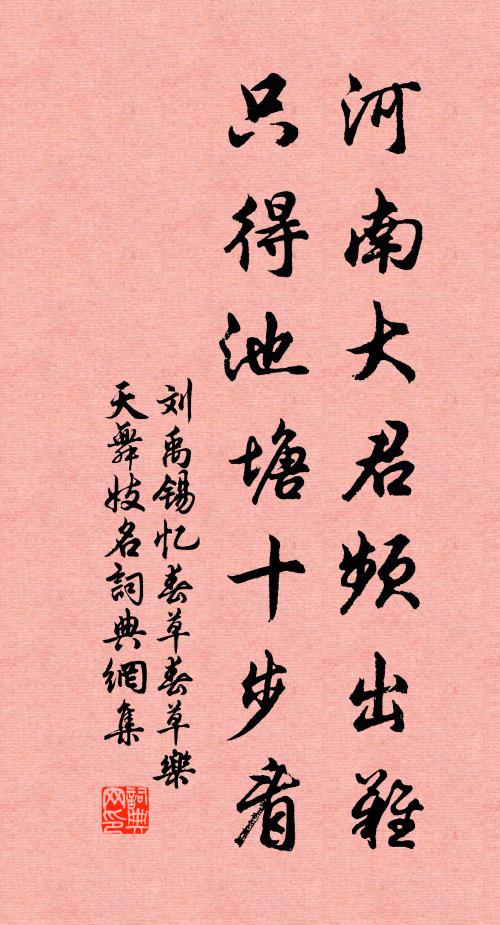 河南大君频出难
只得池塘十步看
刘禹锡忆春草春草樂
天舞妓名詞典網集
詞典网印